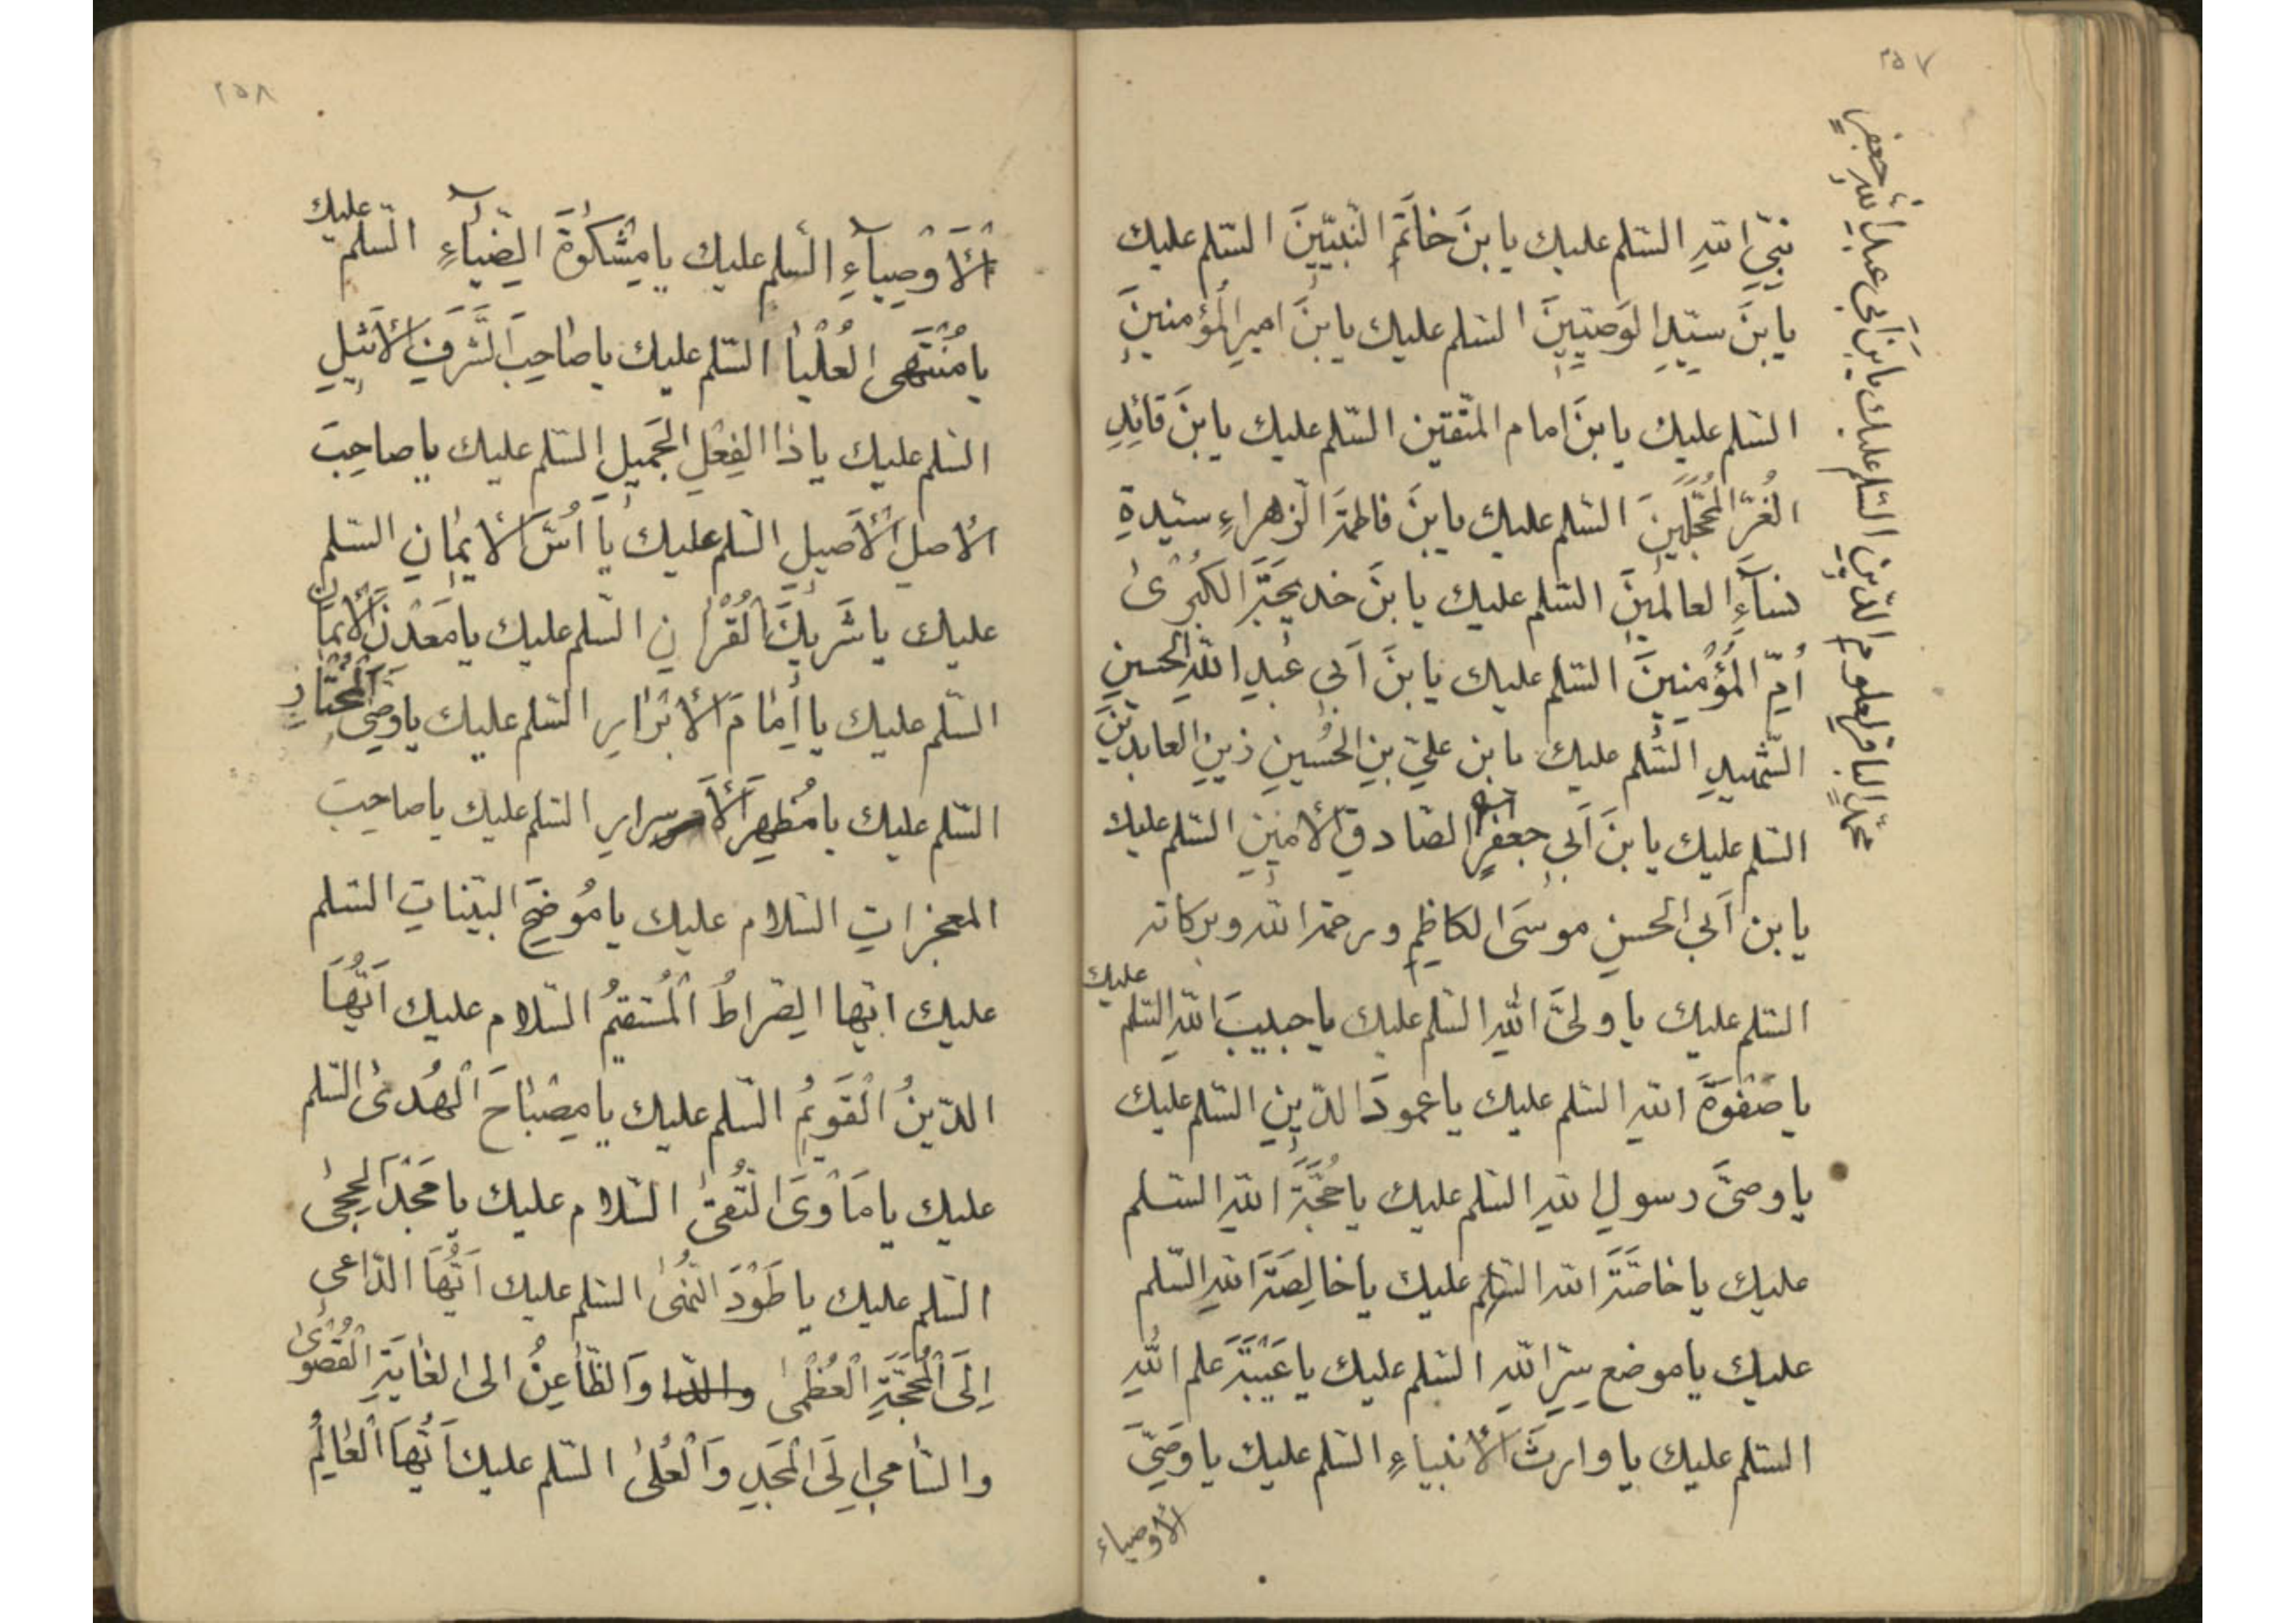 ٢٥٧
نبيّ الله السّلم عليك يا بنَ خاتَمِ النّبيّينَ السّلم عليك
يا بنَ سيّدِ الوَصيّينَ السّلم عليك يا بنَ اميرِ المُؤمنينَ
السّلم عليك يا بنَ امام المتّقين السّلم عليك يا بنَ قائِدِ
الغُرِّ المُحَجَّلينَ السّلم عليك يا بنَ فاطمَةَ الزّهراءِ سيّدةِ
نساۤءِ العالَمينَ السّلم عليك يا بنَ خديجَةَ الكُبْرىٰ
اُمِّ المُؤمِنينَ السّلم عليك يا بنَ اَبي عَبدِ اللهِ الحسينِ
الشّهيدِ السّلم عليك يا بن عليّ بنِ الحُسينِ زينِ العابدينَ
السّلم عليك يا بنَ اَبي جعفرٍ الصّادقِ الأمينِ السّلم عليك
يا بن اَبي الحسنِ موسَى الكاظِمِ ورحمة الله وبركاته
السّلم عليك يا وليَّ اللهِ السّلم عليك يا حبيبَ اللهِ السّلم عليك
يا صَفْوَةَ اللهِ السّلم عليك يا عمودَ الدّينِ السّلم عليك
يا وصيَّ رسولِ اللهِ السّلم عليك يا حُجَّةَ اللهِ السّلم
عليك يا خاصَّةَ الله السّلم عليك يا خالِصَةَ اللهِ السّلم
عليك يا موضع سِرِّ اللهِ السّلم عليك يا عَيْبَةَ علم اللهِ
السّلم عليك يا وارثَ الأنبياءِ السّلم عليك يا وَصِيَّ
الأوصياء
محمّدٍ الباقرِ لعلومِ الدّينِ السّلم عليك يا بنَ اَبي عبدِ اللهِ جعفرٍ
٢٥٨
اْلأَوْصِيآءِ السّلم عليك يا مِشْكٰوةَ الضِّيآءِ السّلم عليك
يا مُنْتَهَى العُلْيا السّلم عليك يا صاحِبَ الشَّرَفِ الأَثيلِ
السّلم عليك يا ذا الفِعْلِ الجَميلِ السّلم عليك يا صاحِبَ
الأصلِ الأَصيلِ السّلم عليك يا اُسَّ الأيمانِ السّلم
عليك يا شَريكَ القُرْانِ السّلم عليك يا مَعْدِنَ الأيمانِ
السّلم عليك يا اِمامَ الأبْرارِ السّلم عليك يا وَصِيَّ المُخْتارِ
السّلم عليك يا مُظهِرَ الأسرارِ السّلم عليك يا صاحِبَ
المعجزاتِ السّلام عليك يا مُوضِحَ البيّناتِ السّلم
عليك ايّها الصِّراطُ المُستقيمُ السّلام عليك اَيُّهَا
الدّينُ الْقَويمُ السّلم عليك يا مِصْباحَ الْهُدىٰ السّلم
عليك يا مَاْوَى التُّقىٰ السّلام عليك يا مَجْدَ الحِجىٰ
السّلم عليك يا طَوْدَ النُّهىٰ السّلم عليك اَيُّهَا الدّاعي
اِلَى الْمَحَجَّةِ الْعُظْمىٰ والدا وَالظّاعِنُ الى الغايَةِ الْقُصْوىٰ
والسّامي اِلَى الْمَجدِ وَالْعُلىٰ السّلم عليك اَيُّهَا الْعٰالِمُ